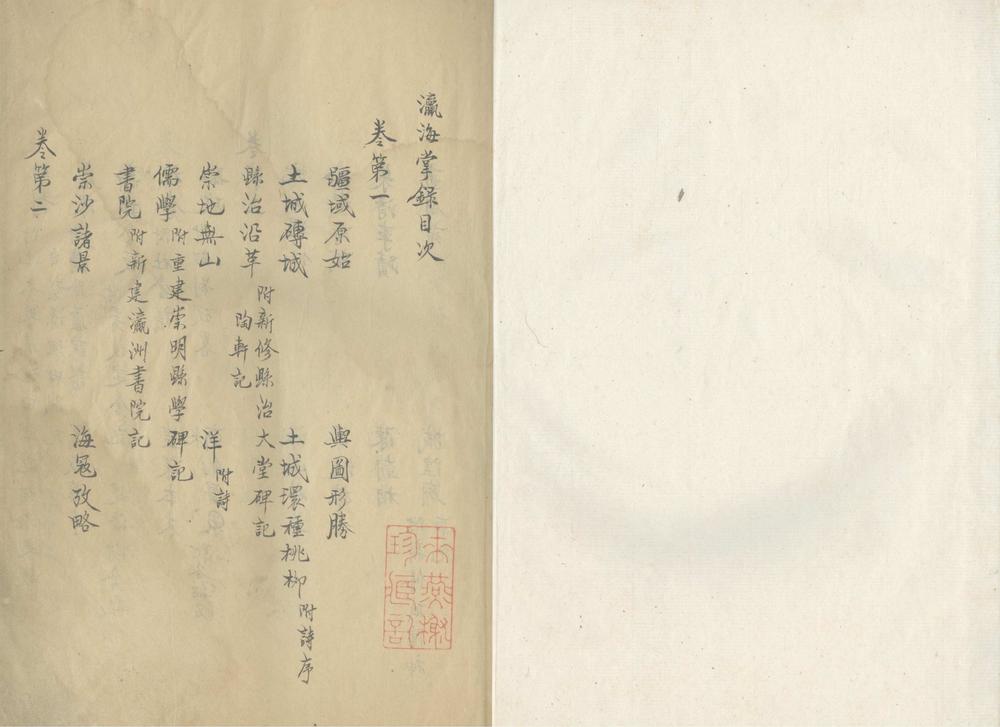 瀛海掌録目次
卷第一
疆域原始
輿圖形勝
土城磚城
土城環種桃柳 附詩序
縣治沿革 附新修縣治大堂碑記
陶軒記
崇地無山
洋 附詩
儒學 附重建崇明縣學碑記
書院 附新建瀛洲書院記
崇沙諸景
海寇攷略
卷第二